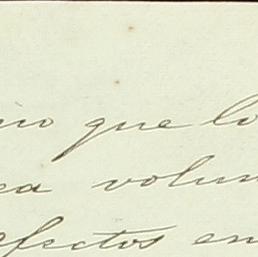 no que lo
ea volun
efectos en